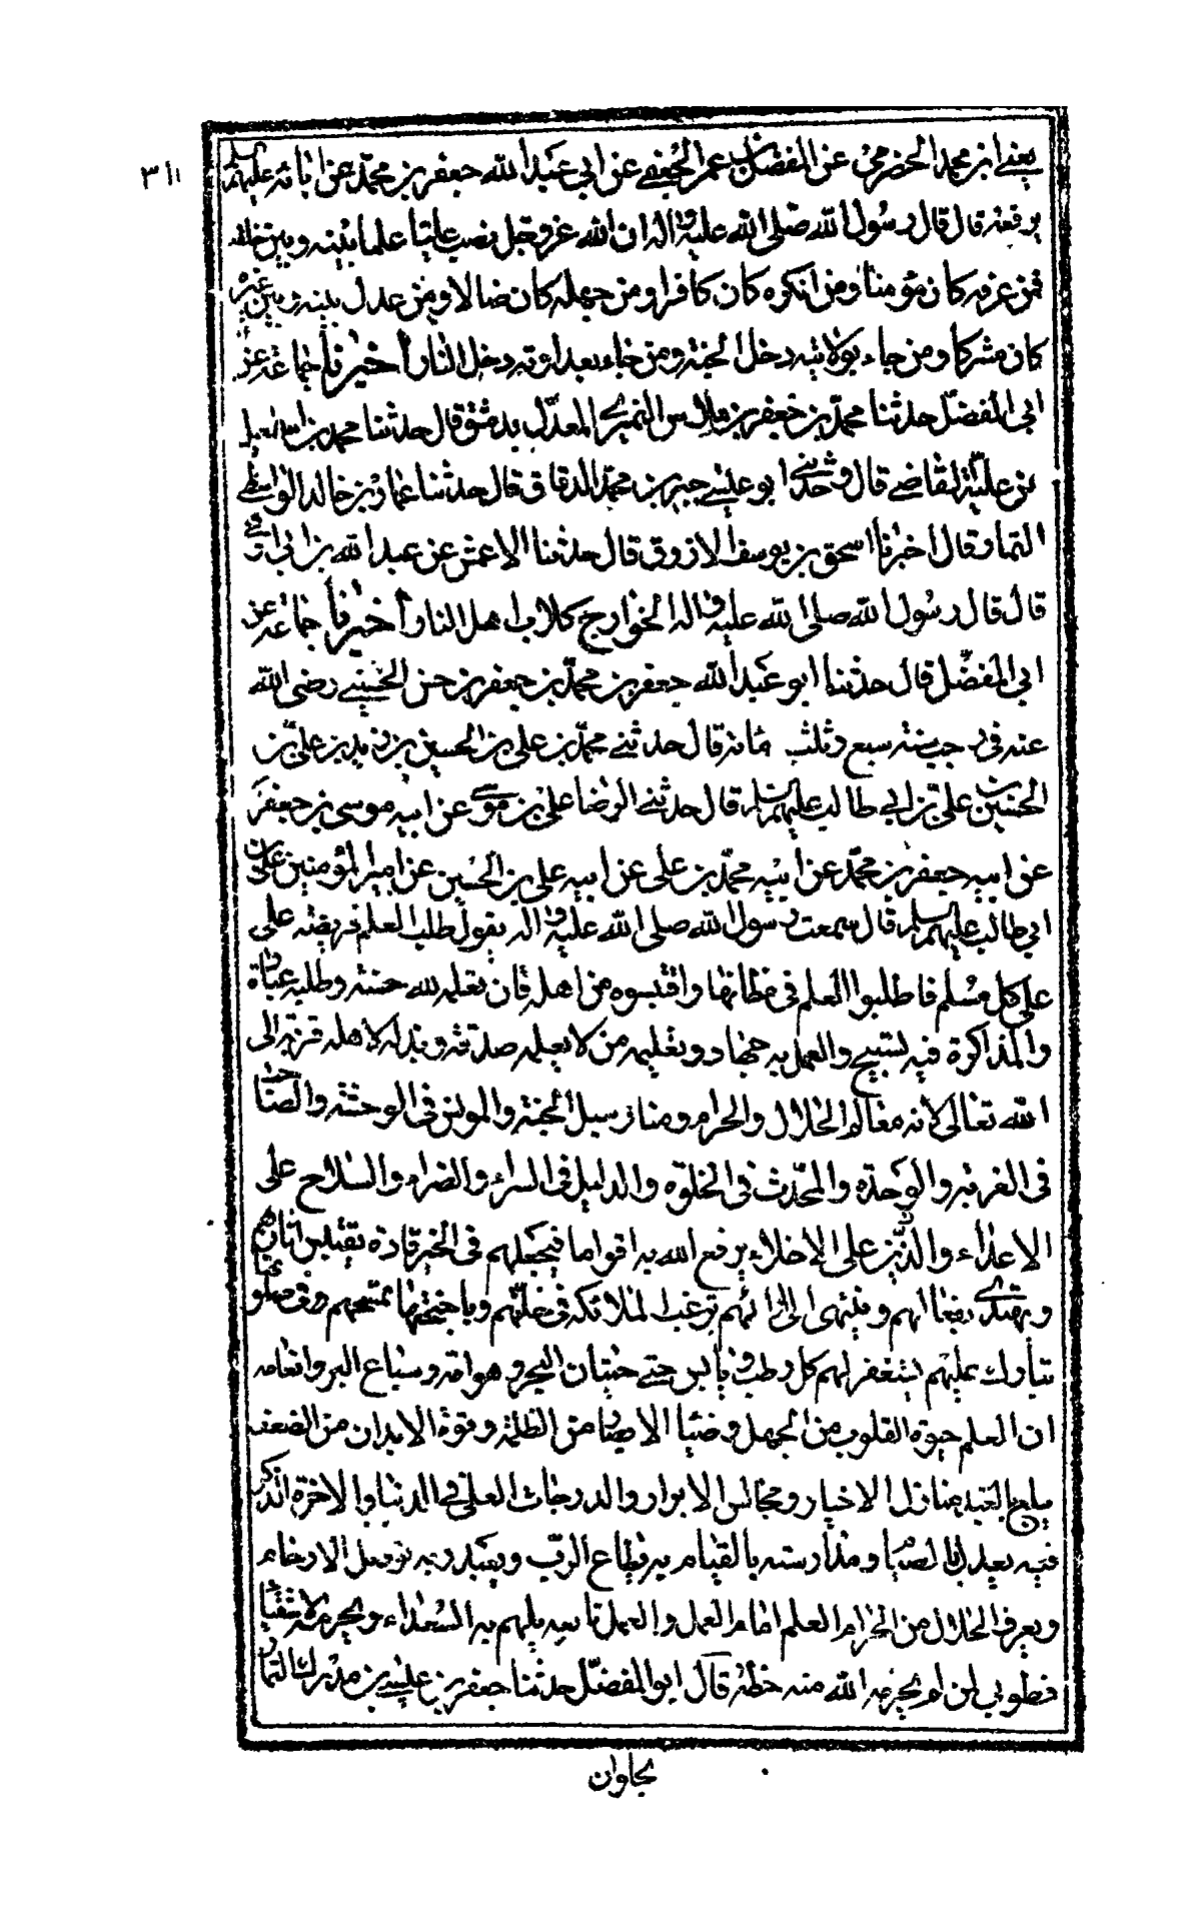 ٣١١
يعني ابن محمد الحضرمي عن المفضل بن عمر الجعفي عن ابي عبد الله جعفر بن محمد عن ابائه عليهم السلم
يرفعه قال قال رسول الله صلى الله عليه واله ان الله عز وجل نصب عليا علما بينه وبين خلقه
فمن عرفه كان مؤمنا ومن انكره كان كافرا ومن جهله كان ضالا ومن عدل بينه وبين غيره
كان مشركا ومن جاء بولايته دخل الجنة ومن جاء بعداوته دخل النار أخبرنا جماعة عن
ابي المفضل حدثنا محمد بن جعفر بن ملاس النميري المعدل بدمشق قال حدثنا محمد بن اسمعيل
بن علية القاضي قال وحدثني ابو عيسى جبير بن محمد الدقاق قال حدثنا عمار بن خالد الواسطي
التمار قال اخبرنا اسحق بن يوسف الازرق قال حدثنا الاعمش عن عبد الله بن ابي اوفى
قال قال رسول الله صلى الله عليه واله الخوارج كلاب اهل النار أخبرنا جماعة عن
ابي المفضل قال حدثنا ابو عبد الله جعفر بن محمد بن جعفر بن حسن الحسيني رضى الله
عنه في رجب سنة سبع وثلث مائة قال حدثني محمد بن علي بن الحسين بن زيد بن علي بن
الحسين بن علي بن ابي طالب عليهم السلم قال حدثني الرضا علي بن موسى عن ابيه موسى بن جعفر
عن ابيه جعفر بن محمد عن ابيه محمد بن على عن ابيه علي بن الحسين عن امير المؤمنين علي بن
ابي طالب عليهم السلم قال سمعت رسول الله صلى الله عليه واله يقول طلب العلم فريضة على
على كل مسلم فاطلبوا العلم في مظانها واقتبسوه من اهله فان تعلمه لله حسنة وطلبه عبادة
والمذاكرة فيه تسبيح والعمل به جهاد وتعليمه من لا يعلمه صدقة وبذله لاهله قربة الى
الله تعالى لانه معالم الحلال والحرام ومنار سبيل الجنة والمونس في الوحشة والصاحب
في الغربة والوحدة والمحدث في الخلوة والدليل في السراء والضراء والسلاح على
الاعداء والزين على الاخلاء يرفع الله به اقواما فيجعلهم في الخير قادة تقتبس اثارهم
ويهتدى بفعالهم وينتهى الى ارائهم ترغب الملائكه في خلتهم وباجنحتها تمسحهم وفى صلوتها
تبارك عليهم يستغفر لهم كل رطب ويابس حتى حيتان البحر وهوامه وسباع البر وانعامه
ان العلم حيوة القلوب من الجهل وضياء الابصار من الظلمة وقوة الابدان من الضعف
يبلغ بالعبد منازل الاخيار ومجالس الابرار والدرجات العلى في الدنيا والاخرة الذكر
فيه يعدل بالصيام ومدارسته بالقيام به يطاع الرب ويعبد وبه توصل الارحام
ويعرف الحلال من الحرام العلم امام العمل والعمل تابعه يلهم به السعداء ويحرمه الاشقياء
فطوبى لمن لم يحرمه الله منه حظه قال ابو المفضل حدثنا جعفر بن عيسى بن مدرك التمار
بحاوان